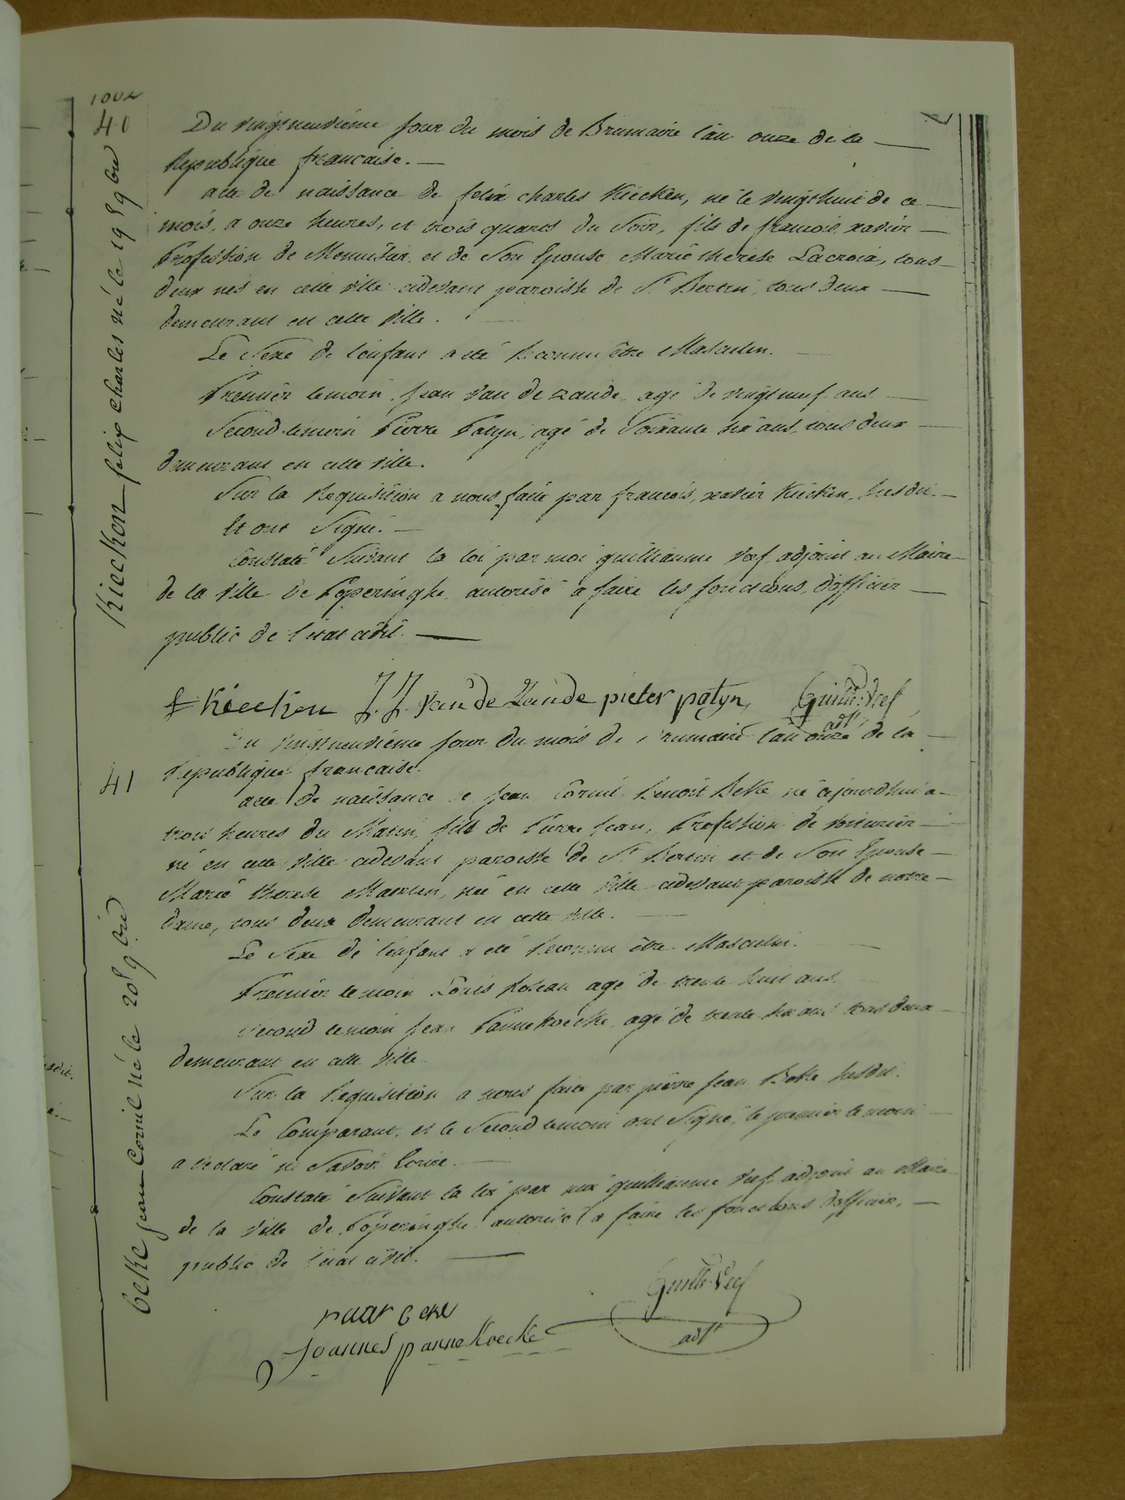 1802
40
Kiecken felix charles né le 19 9bre
Du vingtneuvième jour du mois de Brumaire l'an onze de la
Republique française.
acte de naissance de felix charles Kiecken, né le vingthuit de ce
mois, a onze heures, et trois quarts du Soir, fils de francois xavier
Profession de Menuisier et de Son Epouse Marie therese Lacroix, tous
deux nés en cette ville cidevant paroisse de St Bertin, tous deux
demeurant en cette Ville.
Le Sexe de l'enfant a été Reconnu être Masculin.
Premier temoin jean Van de zande agé de vingt neuf ans
Second temoin Pierre Patyn, agé de Soixante six ans, tous deux
demeurant en cette ville.
Sur la Requisition a nous faite par francois xavier Kiecken, Susdit
Et ont Signé.
Constaté Suivant la loi par moi guilliaume Vref adjoint au Maire
de la Ville de Poperinghe autorisé a faire les fonctions d'officier
public de l'état civil.
f Kiecken J. J. van de Zande pieter patyn, Guill: Vref
adjt
41
beke jean Cornil né le 20 9bre
Du vingtneuvième jour du mois de Brumaire l'an onze de la
Republique française.
acte de naissance de jean Cornil Benoit Beke né cejourdhui a
trois heures du Matin, fils de Pierre jean, Profession de voiturier
né en cette Ville cidevant paroisse de St Bertin et de Son Epouse
Marie therese Maerten, née en cette Ville cidevant paroisse de notre
Dame, tous deux demeurant en cette ville.
Le Sexe de l'enfant a été Reconnu être Masculin.
Premier temoin Louis agé de trente huit ans
Second temoin jean Pannekoecke agé de trente six ans tous deux
demeurant en cette Ville
Sur la Requisition a nous faite par pierre jean Beke Susdit.
Le Comparant, et le Second temoin ont Signé, le premier temoin
a declaré ne Savoir Ecrire.
Constaté Suivant la loi par moi guilliaume Vref adjoint au Maire
de la Ville de Poperinghe autorisé a faire les fonctions d'officier
public de l'état civil.
Guill: Vref
adjt
beke
Joannes pannekoecke